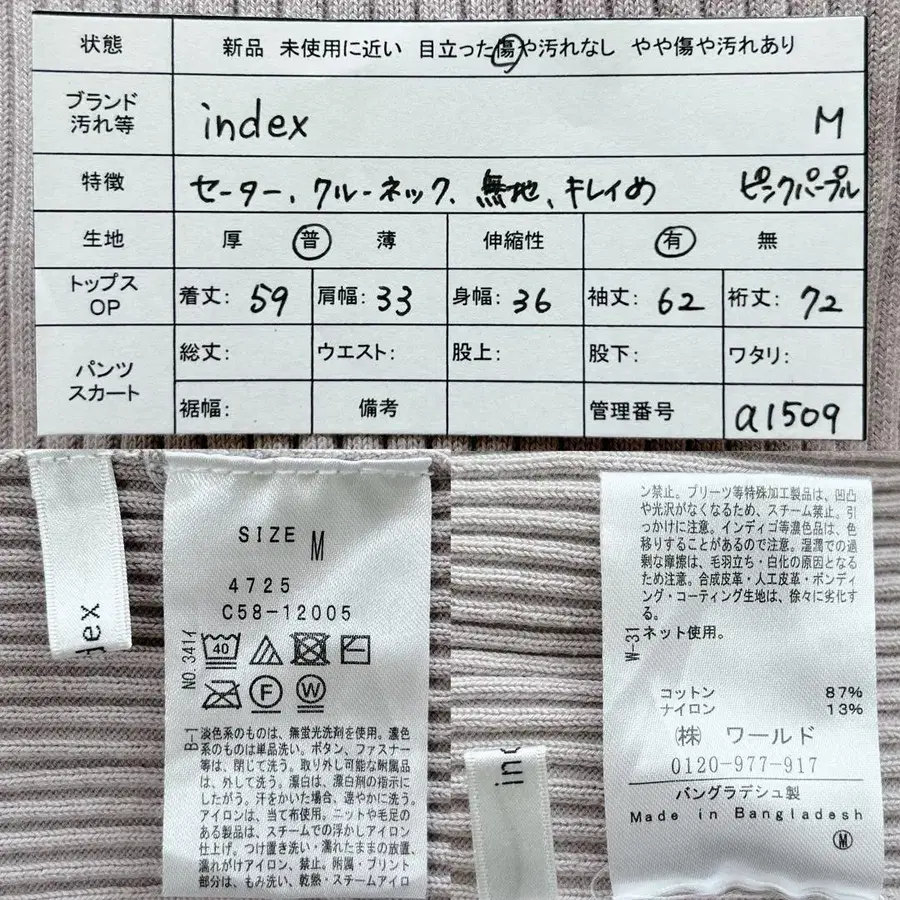 状態 新品 未使用に近い 目立った傷や汚れなし やや傷や汚れあり
ブランド
汚れ等
index M
特徴 セーター、クルーネック、無地、キレイめ ピンクパープル
生地 厚 普 薄 伸縮性 有 無
トップス
OP
着丈: 59 肩幅: 33 身幅: 36 袖丈: 62 裄丈: 72
パンツ
スカート
総丈: ウエスト: 股上: 股下: ワタリ:
裾幅: 備考 管理番号 a1509
dex
SIZE M
4725
C58-12005
NO.3414
40
F W
B-1
淡色系のものは、無蛍光洗剤を使用。濃色
系のものは単品洗い。ボタン、ファスナー
等は、閉じて洗う。取り外し可能な附属品
は、外して洗う。漂白は、漂白剤の指示に
したがう。汗をかいた場合、速やかに洗う。
アイロンは、当て布使用。ニットや毛足の
ある製品は、スチームでの浮かしアイロン
仕上げ。つけ置き洗い・濡れたままの放置、
濡れがけアイロン、禁止。附属・プリント
部分は、もみ洗い、乾熱・スチームアイロ
ン禁止。プリーツ等特殊加工製品は、凹凸
や光沢がなくなるため、スチーム禁止。引
っかけに注意。インディゴ等濃色品は、色
移りすることがあるので注意。湿潤での過
剰な摩擦は、毛羽立ち・白化の原因となる
ため注意。合成皮革・人工皮革・ボンディ
ング・コーティング生地は、徐々に劣化す
る。
W-31
ネット使用。
コットン 87%
ナイロン 13%
(株) ワールド
0120-977-917
バングラデシュ製
Made in Bangladesh
M
in